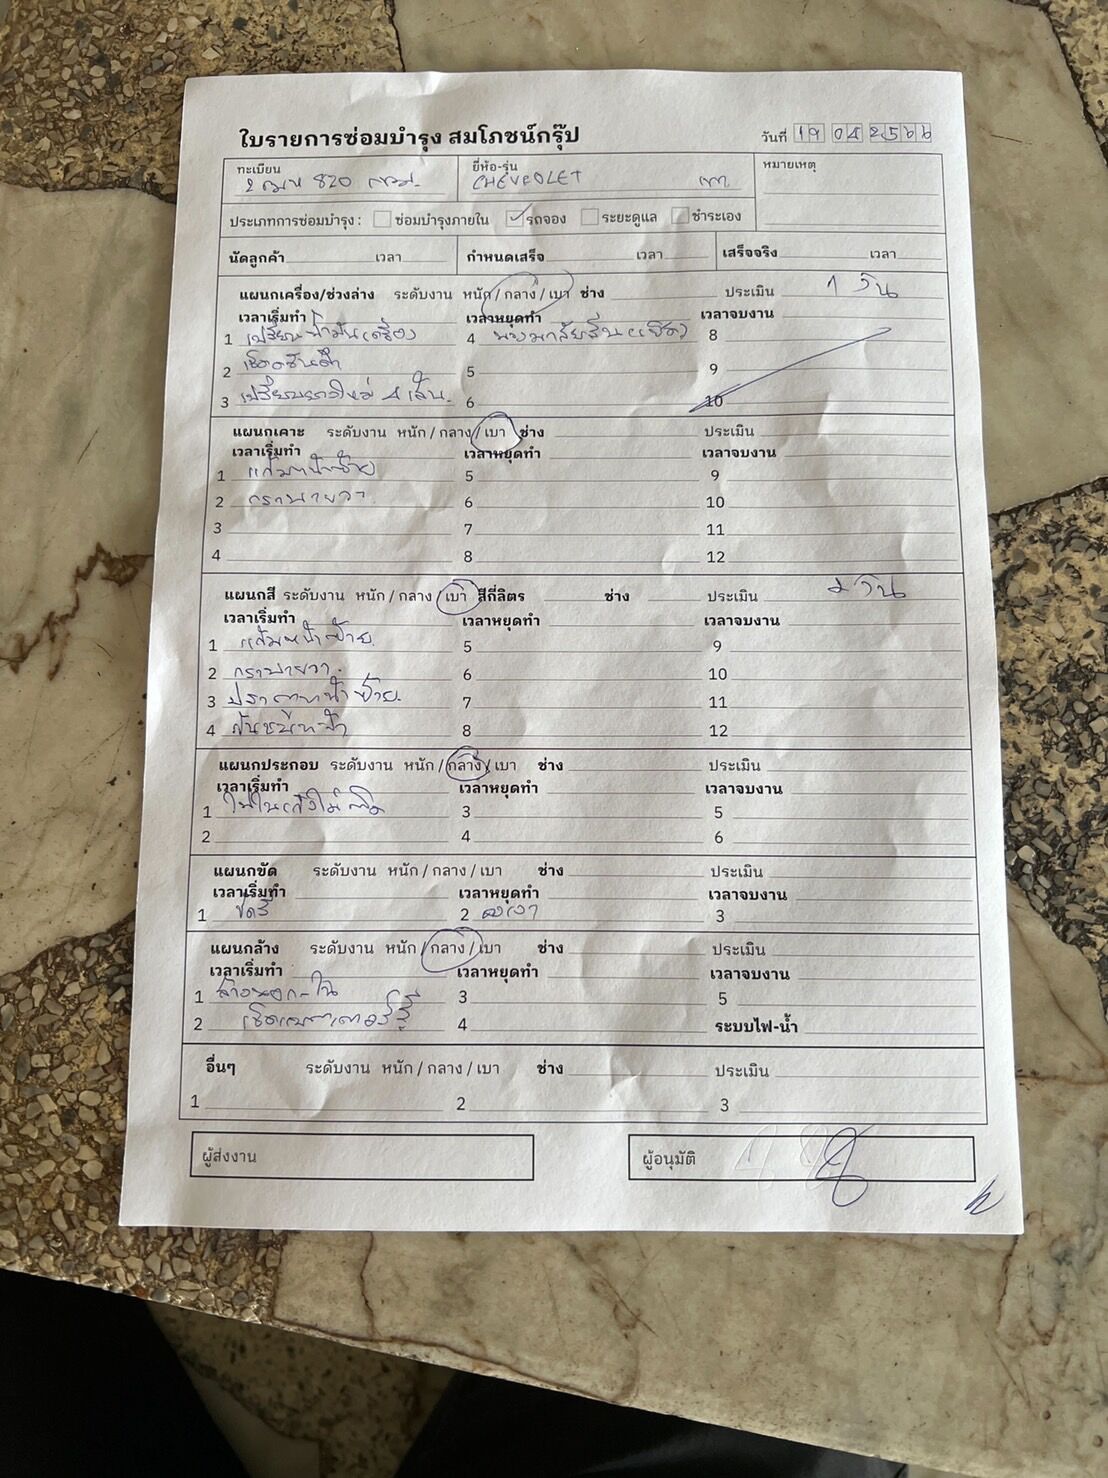 ใบรายการซ่อมบำรุง สมโภชน์กรุ๊ป
วันที่ 19 04 2566
ทะเบียน
820 กทม.
ยี่ห้อ-รุ่น
CHEVROLET
หมายเหตุ
ประเภทการซ่อมบำรุง : ซ่อมบำรุงภายใน รถจอง ระยะดูแล ชำระเอง
นัดลูกค้า เวลา กำหนดเสร็จ เวลา เสร็จจริง เวลา
แผนกเครื่อง/ช่วงล่าง ระดับงาน หนัก / กลาง / เบา ช่าง ประเมิน 1 วัน
เวลาเริ่มทำ เวลาหยุดทำ เวลาจบงาน
1 เปลี่ยนน้ำมันเครื่อง 4 8
2 5 9
3 เปลี่ยนยางใหม่ 4 เส้น. 6 10
แผนกเคาะ ระดับงาน หนัก / กลาง / เบา ช่าง ประเมิน
เวลาเริ่มทำ เวลาหยุดทำ เวลาจบงาน
1 แก้มหน้าซ้าย 5 9
2 กราบขวา 6 10
3 7 11
4 8 12
แผนกสี ระดับงาน หนัก / กลาง / เบา สีกี่ลิตร ช่าง ประเมิน 2 วัน
เวลาเริ่มทำ เวลาหยุดทำ เวลาจบงาน
1 แก้มหน้าซ้าย. 5 9
2 กราบขวา. 6 10
3 ประตูหน้าซ้าย. 7 11
4 กันชนหน้า 8 12
แผนกประกอบ ระดับงาน หนัก / กลาง / เบา ช่าง ประเมิน
เวลาเริ่มทำ เวลาหยุดทำ เวลาจบงาน
1 3 5
2 4 6
แผนกขัด ระดับงาน หนัก / กลาง / เบา ช่าง ประเมิน
เวลาเริ่มทำ เวลาหยุดทำ เวลาจบงาน
1 ขัดสี 2 3
แผนกล้าง ระดับงาน หนัก / กลาง / เบา ช่าง ประเมิน
เวลาเริ่มทำ เวลาหยุดทำ เวลาจบงาน
1 ล้างนอก-ใน 3 5
2 เช็คแบตเตอรี่ 4 ระบบไฟ-น้ำ
อื่นๆ ระดับงาน หนัก / กลาง / เบา ช่าง ประเมิน
1 2 3
ผู้ส่งงาน ผู้อนุมัติ